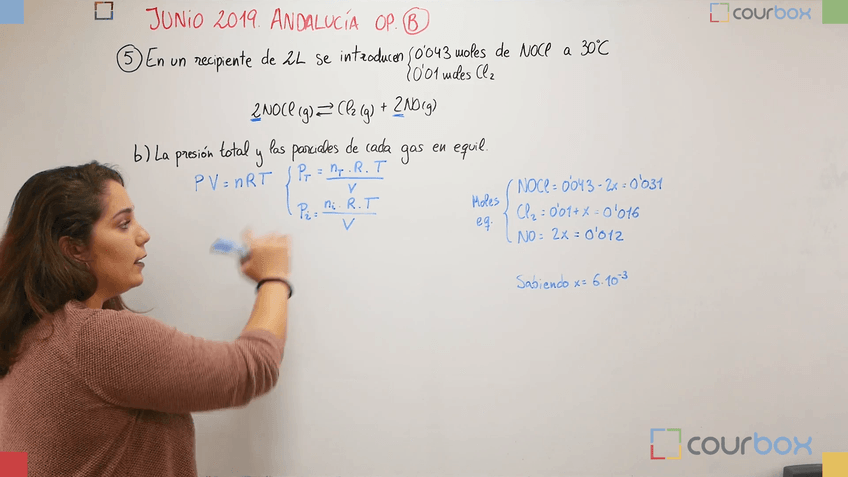 JUNIO 2019. ANDALUCÍA OP. B
courbox
5 En un recipiente de 2L se introducen { 0'043 moles de NOCl a 30ºC
0'01 moles Cl₂
2NOCl(g) ⇌ Cl₂(g) + 2NO(g)
b) La presión total y las parciales de cada gas en equil.
PV = nRT { P_T = n_T . R . T / V
P_i = n_i . R . T / V
Moles eq. { NOCl = 0'043 - 2x = 0'031
Cl₂ = 0'01 + x = 0'016
NO = 2x = 0'012
Sabiendo x = 6·10⁻³
courbox